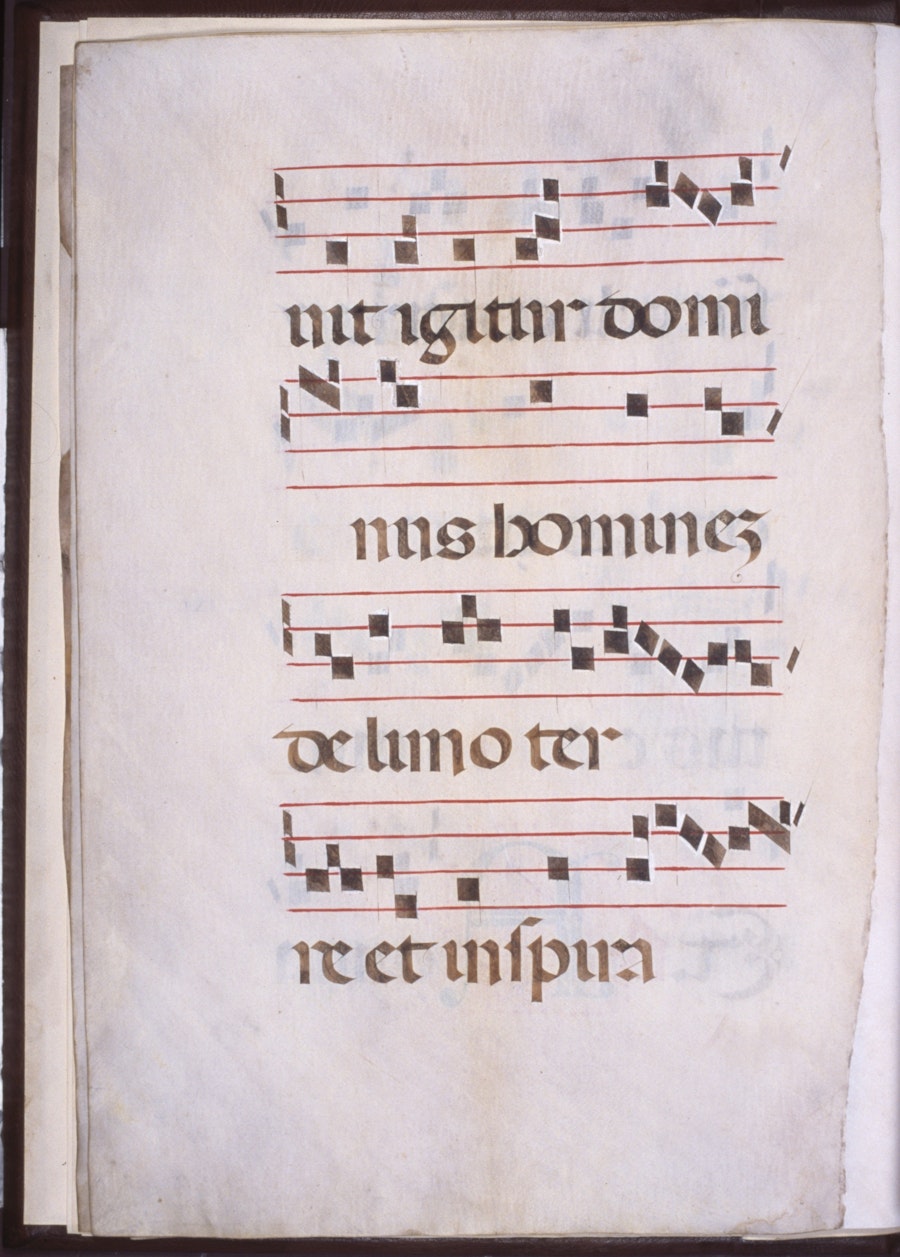 nit igitur domi
nus hominez
de limo ter
re et inspira